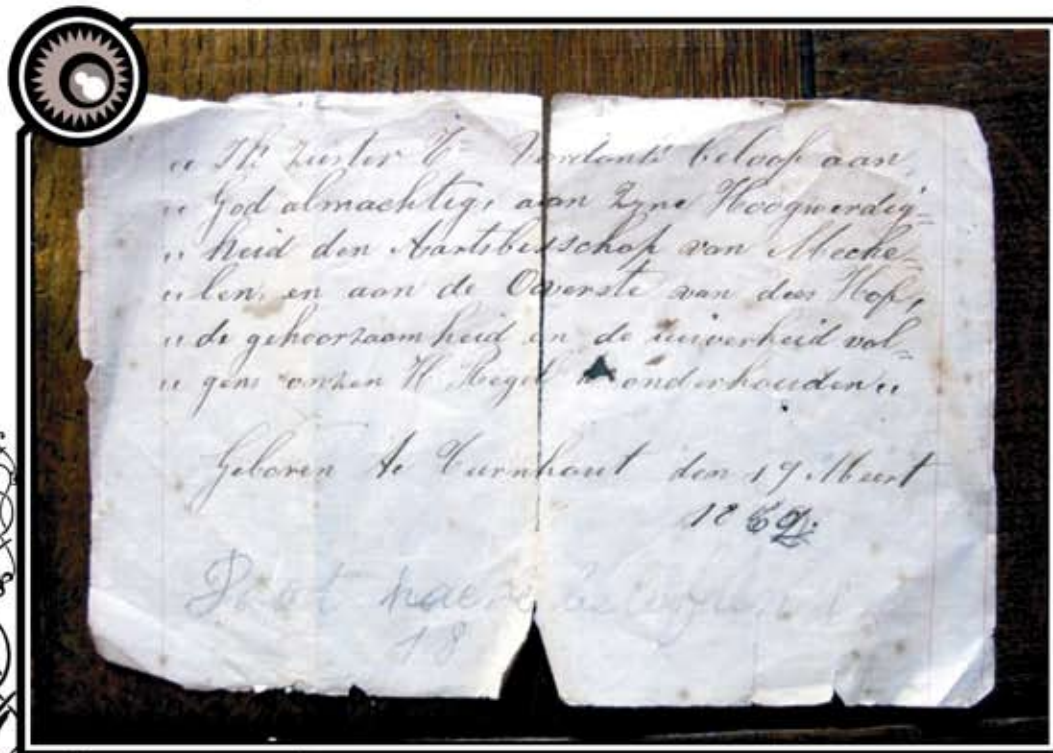 „ Ik Zuster Vordonts beloof aan
„ God almachtig, aan Zyne Hoogwerdig=
„ heid den Aartsbisschop van Meche=
„ len, en aan de Overste van dees Hof,
„ de gehoorzaamheid en de zuiverheid vol=
„ gens onzen H. Regel te onderhouden „
Geboren te Turnhout den 19 Meert
18
18